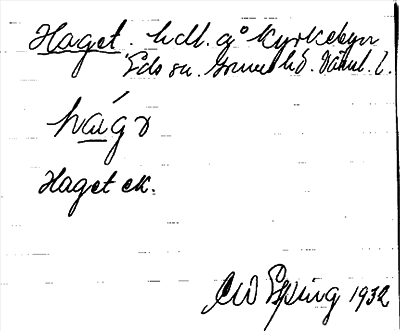 Haget. hdl. på Kyrkebyn
Eds sn. Grums hd. Värml. l.
hágɔ
Haget ek.
CW Epping 1932